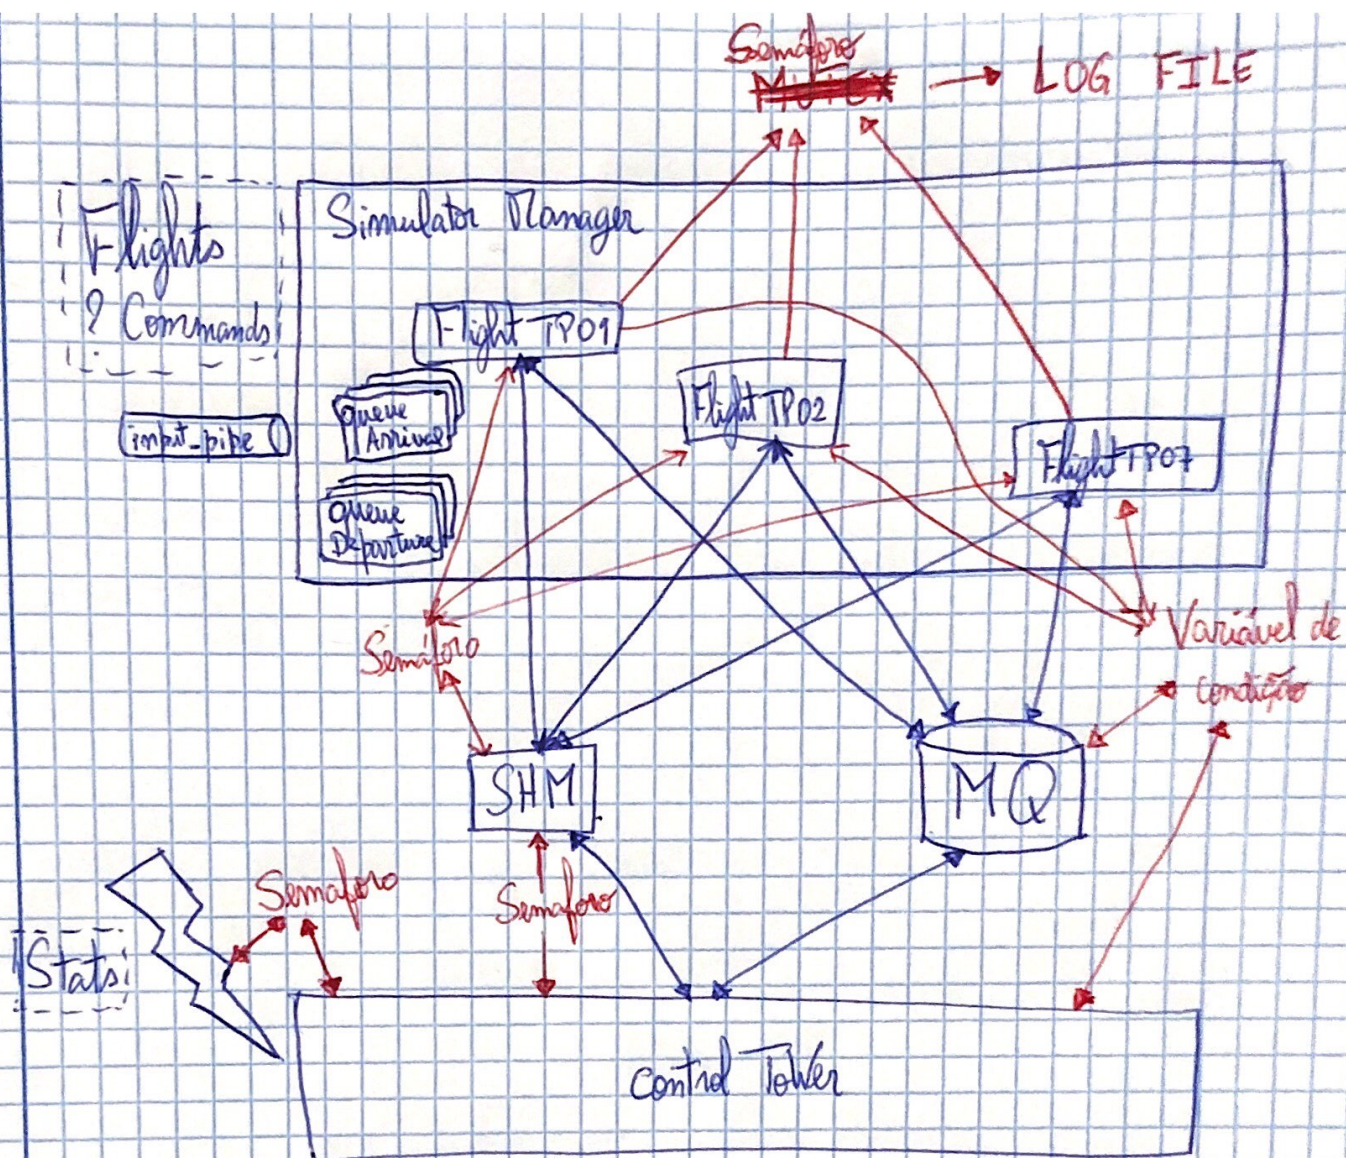 Semáforo
MUTEX
LOG FILE
Flights
? Commands
Simulator Manager
Flight TP01
Flight TP02
Flight TP07
Queue
Arrival
input_pipe
Queue
Departure
Semáforo
Variável de
condição
SHM
MQ
Semaforo
Semaforo
Stats
Control Tower